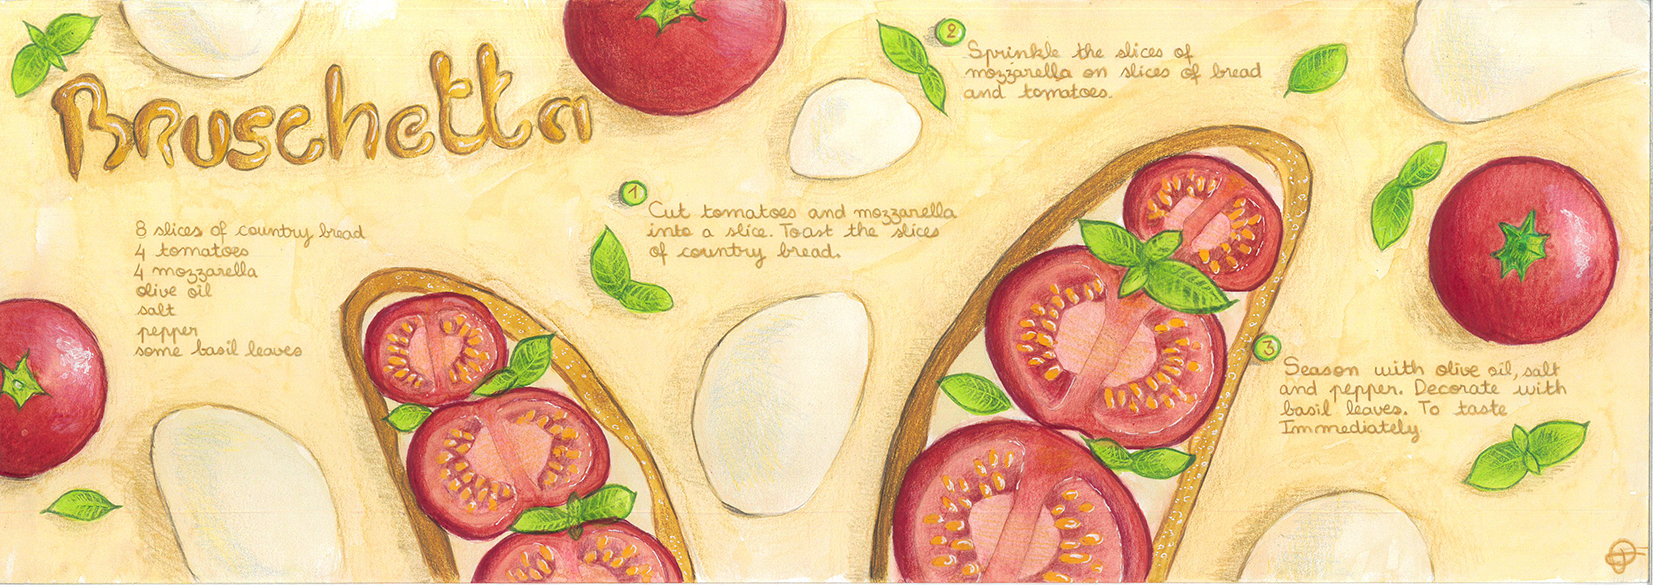 Bruschetta
8 slices of country bread
4 tomatoes
4 mozzarella
olive oil
salt
pepper
some basil leaves
1
Cut tomatoes and mozzarella
into a slice. Toast the slices
of country bread.
2
Sprinkle the slices of
mozzarella on slices of bread
and tomatoes.
3
Season with olive oil, salt
and pepper. Decorate with
basil leaves. To taste
Immediately.